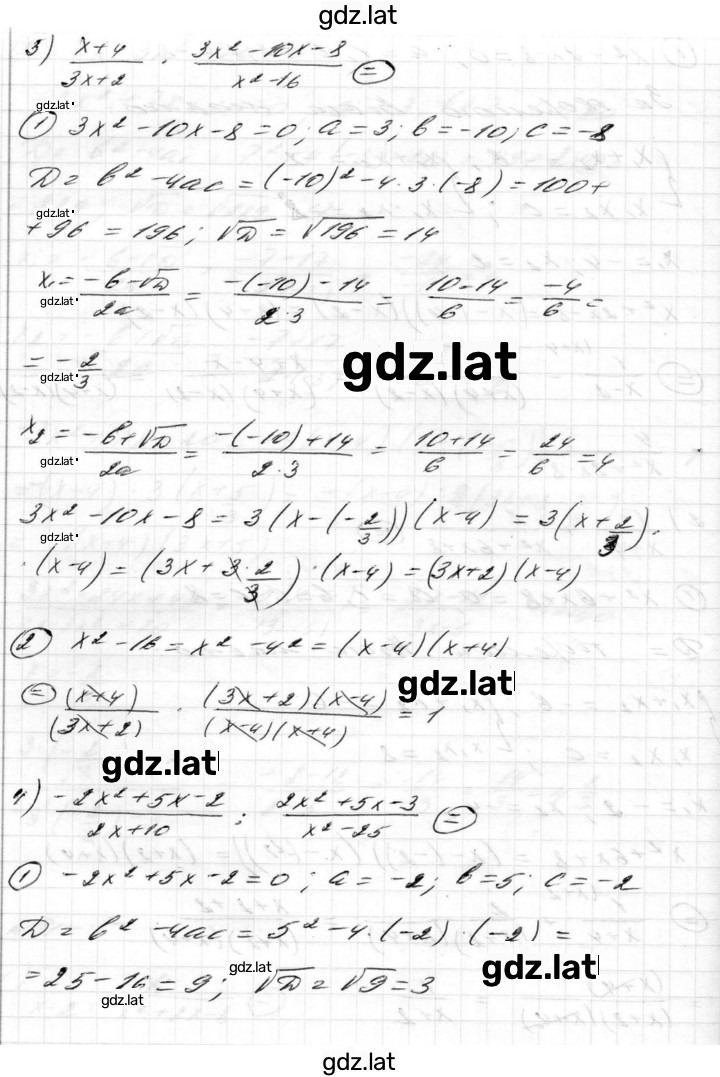 gdz.lat
3) (x+4)/(3x+2) · (3x² -10x-8)/(x²-16) ⊜
gdz.lat
① 3x² -10x-8=0; a=3; b=-10; c=-8
D = b² -4ac = (-10)² -4·3·(-8) = 100+
gdz.lat
+96 = 196; √D = √196 = 14
x₁ = (-b-√D)/(2a) = (-(-10)-14)/(2·3) = (10-14)/6 = (-4)/6 =
gdz.lat
= -2/3
gdz.lat
gdz.lat
x₂ = (-b+√D)/(2a) = (-(-10)+14)/(2·3) = (10+14)/6 = 24/6 = 4
gdz.lat
3x² -10x-8 = 3(x-(-2/3))(x-4) = 3(x+2/3)·
gdz.lat
·(x-4) = (3x+3·2/3)·(x-4) = (3x+2)(x-4)
② x²-16 = x² -4² = (x-4)(x+4)
gdz.lat
⊜ (x+4)/(3x+2) · ((3x+2)(x-4))/((x-4)(x+4)) = 1
gdz.lat
4) (-2x²+5x-2)/(2x+10) : (2x²+5x-3)/(x²-25) ⊜
① -2x²+5x-2=0; a=-2; b=5; c=-2
D = b² -4ac = 5² -4·(-2)·(-2) =
gdz.lat
gdz.lat
=25-16=9; √D = √9 = 3
gdz.lat
gdz.lat